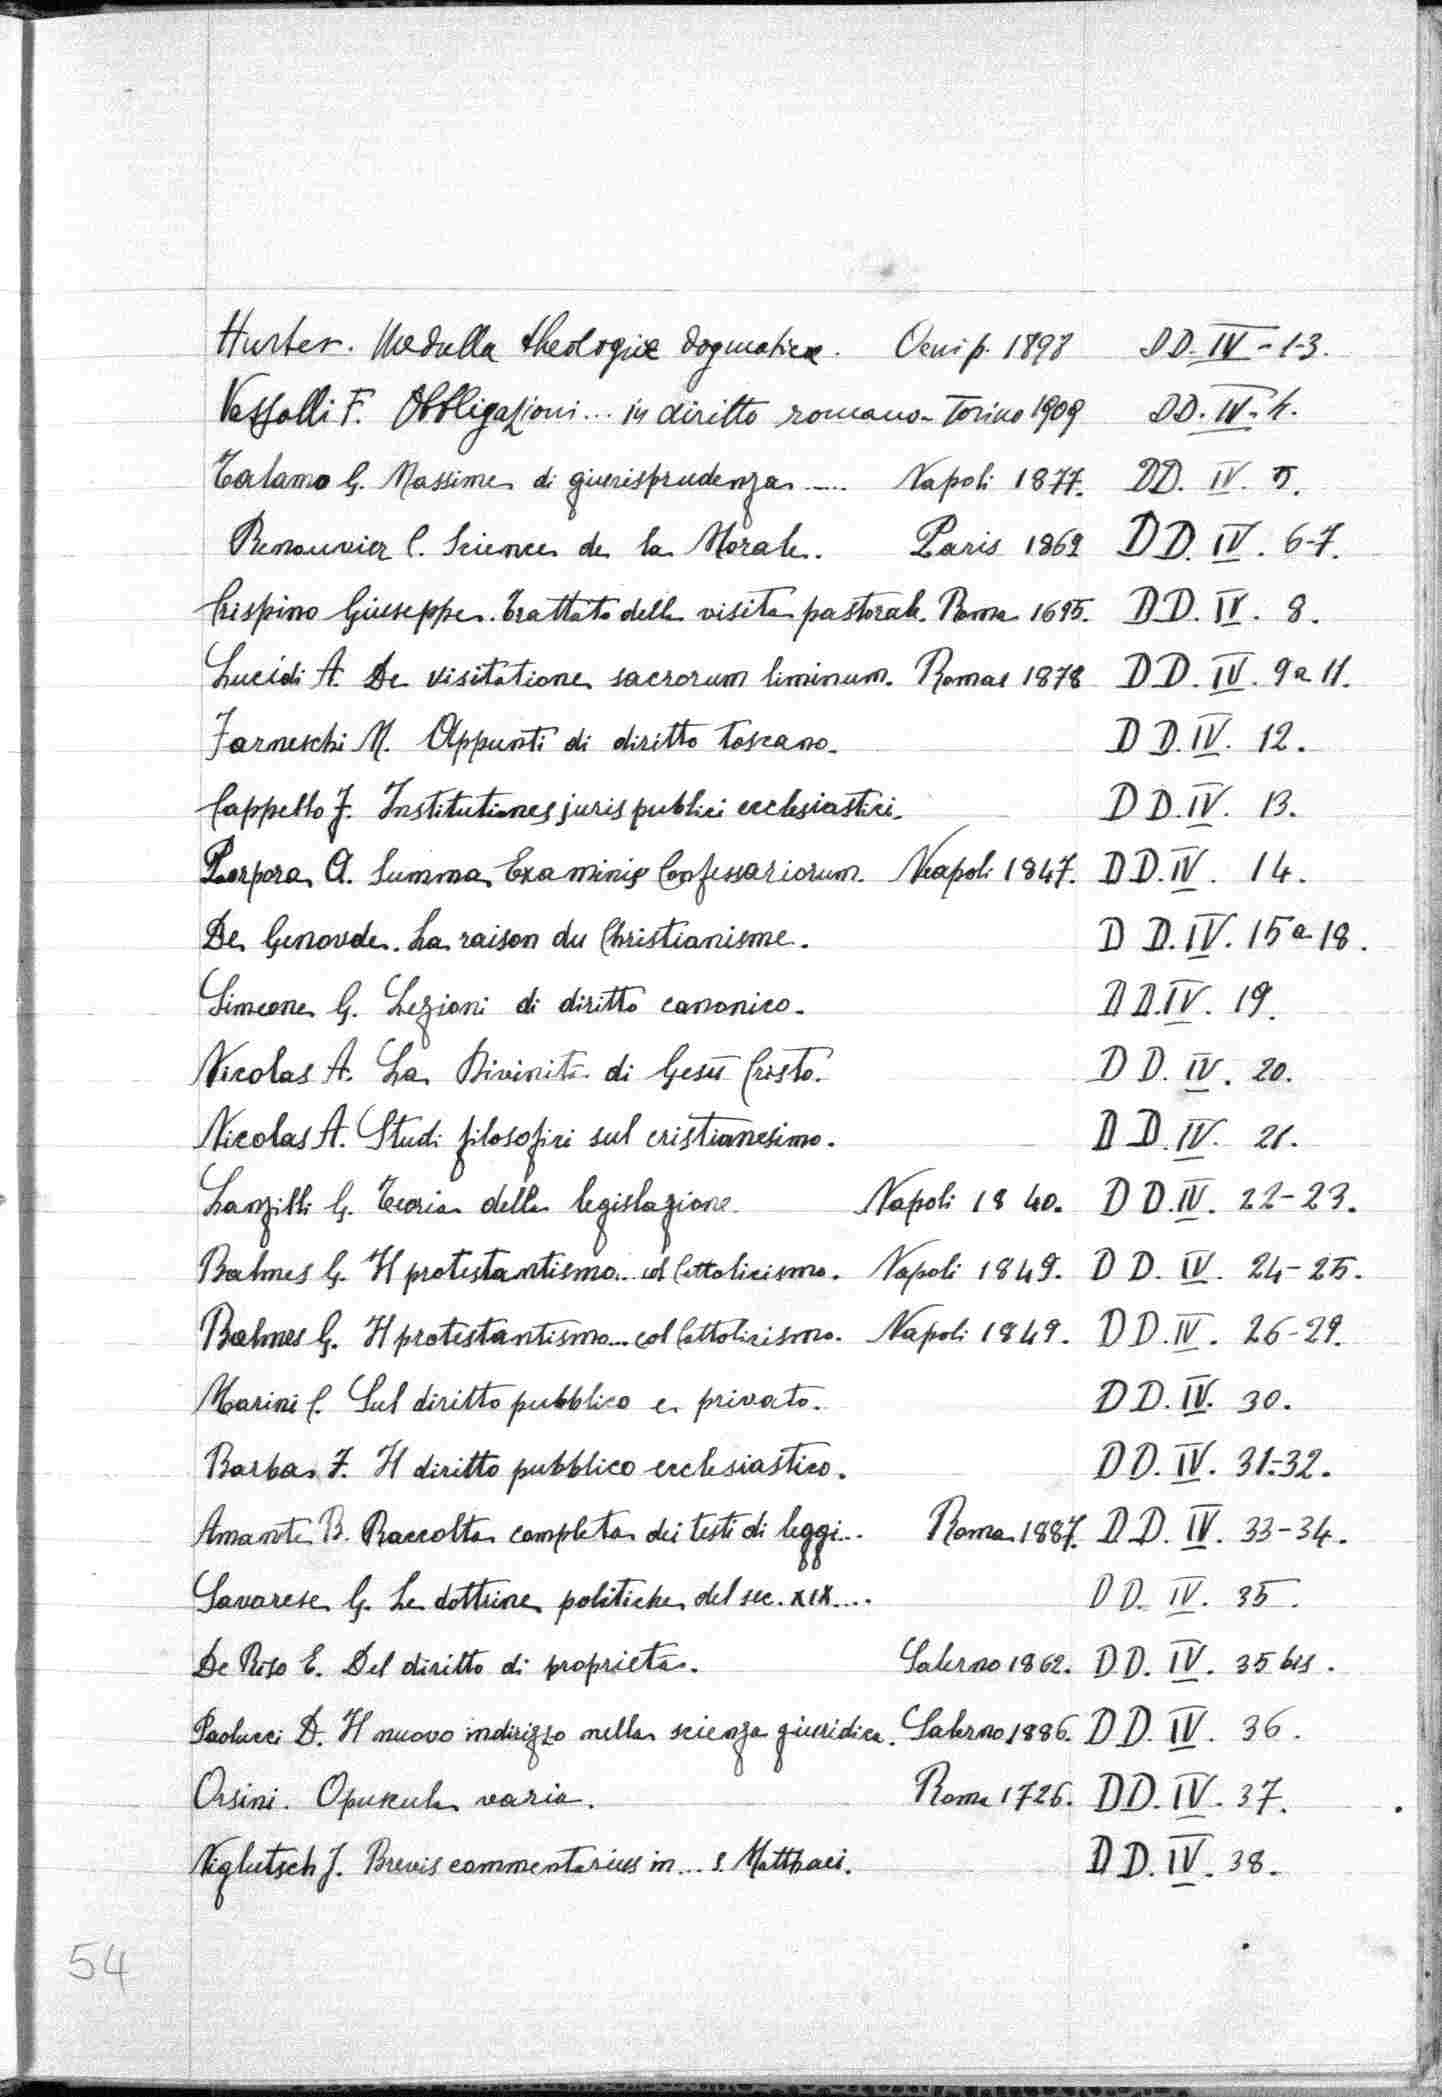 Hurter. Medulla theologiæ dogmaticæ. Oenip. 1898 DD. IV - 1-3.
Vassalli F. Obbligazioni... in diritto romano - Torino 1909 DD. IV. 4.
Talamo G. Massime di giurisprudenza..... Napoli 1877. DD. IV. 5.
Renouvier C. Science de la Morale. Paris 1869 DD. IV. 6-7.
Crispino Giuseppe. Trattato della visita pastorale. Roma 1695. DD. IV. 8.
Lucidi A. De visitatione sacrorum liminum. Romae 1878 DD. IV. 9 a 11.
Farneschi M. Appunti di diritto toscano. DD. IV. 12.
Cappello F. Institutiones juris publici ecclesiastici. DD. IV. 13.
Porpora A. Summa Examinis Confessariorum. Neapoli 1847. DD. IV. 14.
De Genoude. La raison du Christianisme. DD. IV. 15 a 18.
Simeone G. Lezioni di diritto canonico. DD. IV. 19.
Nicolas A. La Divinità di Gesù Cristo. DD. IV. 20.
Nicolas A. Studi filosofici sul cristianesimo. DD. IV. 21.
Lanzilli G. Teoria della legislazione. Napoli 1840. DD. IV. 22-23.
Balmes G. Il protestantismo... col Cattolicismo. Napoli 1849. DD. IV. 24-25.
Balmes G. Il protestantismo... col Cattolicismo. Napoli 1849. DD. IV. 26-29.
Marini C. Sul diritto pubblico e privato. DD. IV. 30.
Barba F. Il diritto pubblico ecclesiastico. DD. IV. 31-32.
Amante B. Raccolta completa dei testi di leggi... Roma 1887. DD. IV. 33-34.
Savarese G. Le dottrine politiche del sec. XIX.... DD. IV. 35.
De Riso E. Del diritto di proprietà. Salerno 1862. DD. IV. 35 bis.
Paolucci D. Il nuovo indirizzo nella scienza giuridica. Salerno 1886. DD. IV. 36.
Orsini. Opuscula varia. Roma 1726. DD. IV. 37.
Niglutsch J. Brevis commentarius in... S. Matthaei. DD. IV. 38.
54